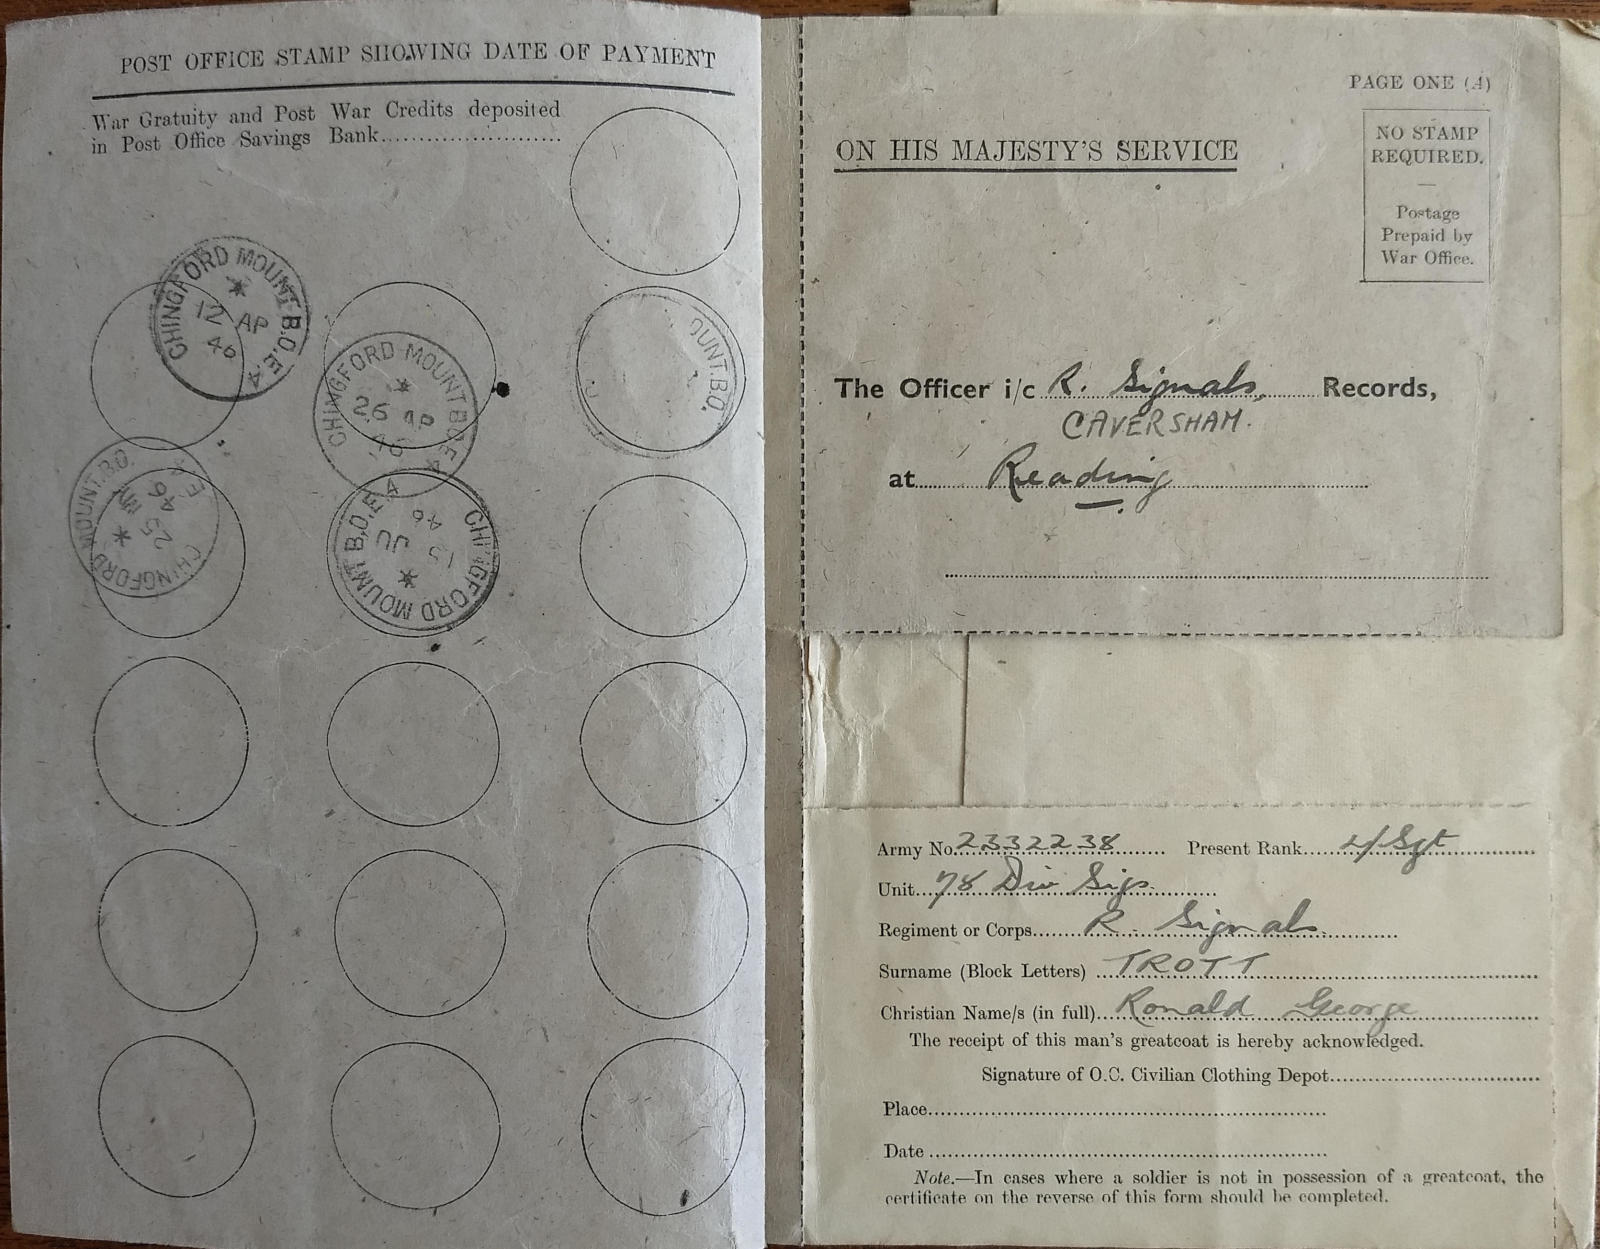 POST OFFICE STAMP SHOWING DATE OF PAYMENT
War Gratuity and Post War Credits deposited
in Post Office Savings Bank....................
CHINGFORD MOUNT B.O.E.4
12 AP
46
CHINGFORD MOUNT B.O.E.4
26 AP
46
OUNT.B.O.
CHINGFORD MOUNT.B.O. E.4
25 MR
46
CHINGFORD MOUNT B.O.E.4
15 JU
46
PAGE ONE (A)
NO STAMP
REQUIRED.
—
Postage
Prepaid by
War Office.
ON HIS MAJESTY'S SERVICE
The Officer i/c R. Signals, Records,
CAVERSHAM.
at Reading
Army No. 2332238 Present Rank. L/Sgt
Unit. 78 Div Sigs.
Regiment or Corps. R. Signals.
Surname (Block Letters) TROTT
Christian Name/s (in full) Ronald George
The receipt of this man's greatcoat is hereby acknowledged.
Signature of O.C. Civilian Clothing Depot..............................
Place..............................
Date ..............................
Note.—In cases where a soldier is not in possession of a greatcoat, the
certificate on the reverse of this form should be completed.